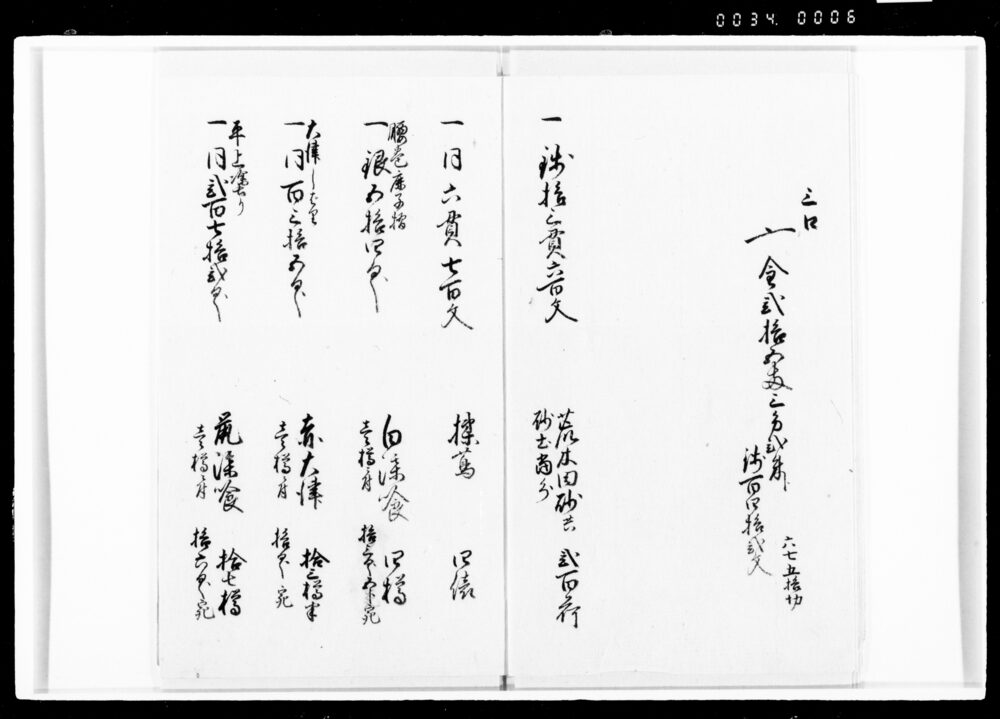 0034. 0006
三口
〆 金弐拾五両三分弐朱
銭百四拾弐文
六七五拾切
一 銭拾三貫六百文
荒木田砂共 弐百荷
砂土
一 同六貫七百文
揉蔦 四俵
腰巻
一 銀五拾四匁
白漆喰 四樽
壱樽ニ付
宛
大津
一 同百三拾五匁
赤大津 拾三樽半
壱樽ニ付 拾匁宛
平上塗
一 同弐百七拾弐匁
鼠漆喰 拾七樽
壱樽ニ付 拾六匁宛